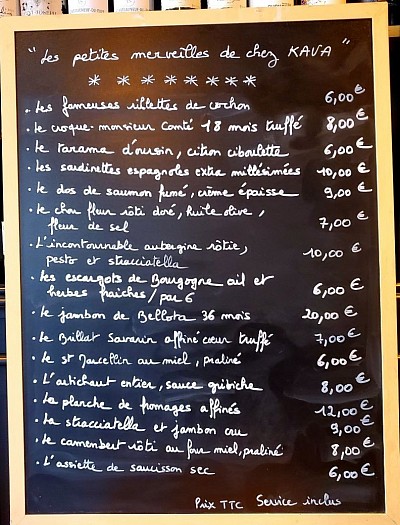 "Les petites merveilles de chez KAVA"
* * * * * * *
. Les fameuses rillettes de cochon 6,00€
. Le croque-monsieur Comté 18 mois truffé 8,00€
. Le tarama d'oursin, citron ciboulette 6,00€
. Les sardinettes espagnoles extra millésimées 10,00€
. Le dos de saumon fumé, crème épaisse 9,00€
. Le chou fleur rôti doré, huile olive,
fleur de sel 7,00€
. L'incontournable aubergine rôtie,
pesto et stracciatella 10,00€
. Les escargots de Bourgogne ail et
herbes fraiches/par 6 6,00€
. Le jambon de Bellota 36 mois 20,00€
. Le Brillat Savarin affiné cœur truffé 7,00€
. Le St Marcellin au miel, praliné 6,00€
. L'artichaut entier, sauce gribiche 8,00€
. La planche de fromages affinés 12,00€
. La stracciatella et jambon cru 9,00€
. Le camembert rôti au four miel, praliné 8,00€
. L'assiette de saucisson sec 6,00€
Prix TTC Service inclus